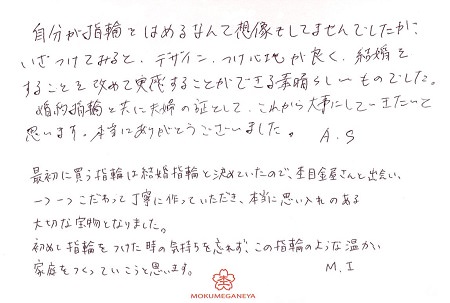 自分が指輪をはめるなんて想像もしてませんでしたが、
いざつけてみると、デザイン、つけ心地が良く、結婚を
することを改めて実感することができる素晴らしいものでした。
婚約指輪と共に夫婦の証として、これから大事にしていきたいと
思います。本当にありがとうございました。 A.S
最初に買う指輪は結婚指輪と決めていたので、杢目金屋さんと出会い、
一つ一つこだわって丁寧に作っていただき、本当に思い入れのある
大切な宝物となりました。
初めて指輪をつけた時の気持ちを忘れず、この指輪のような温かい
家庭をつくっていこうと思います。 M.I
MOKUMEGANEYA